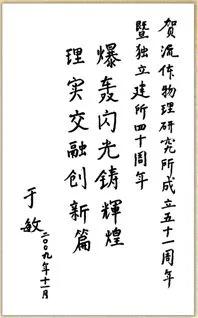 贺流体物理研究所成立五十一周年
暨独立建所四十周年
爆轰闪光铸輝煌
理实交融创新篇
于敏
二〇〇九年十一月